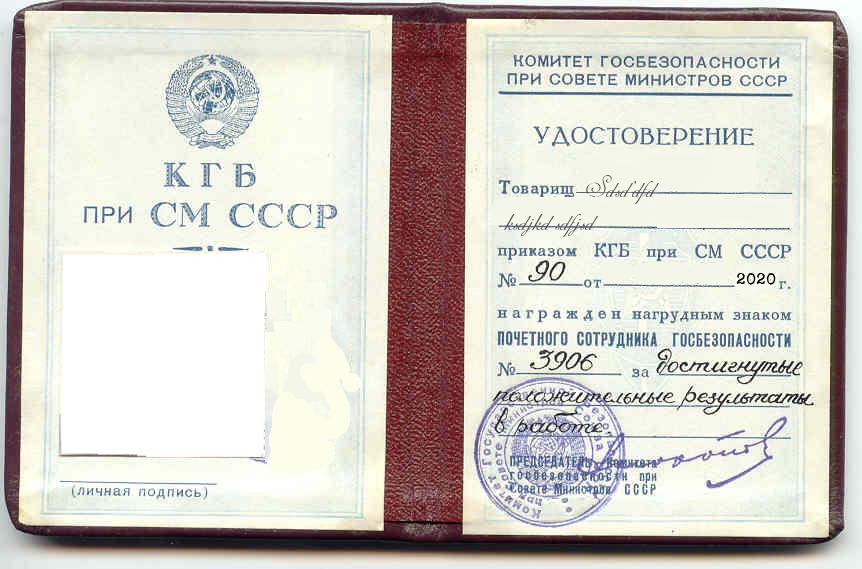 КГБ
ПРИ СМ СССР
(личная подпись)
КОМИТЕТ ГОСБЕЗОПАСНОСТИ
ПРИ СОВЕТЕ МИНИСТРОВ СССР
УДОСТОВЕРЕНИЕ
Товарищ Sdsd dfd
ksdjkd sdfjsd
приказом КГБ при СМ СССР
№ 90 от 2020 г.
награжден нагрудным знаком
ПОЧЕТНОГО СОТРУДНИКА ГОСБЕЗОПАСНОСТИ
№ 3906 за достигнутые
положительные результаты
в работе
ПРЕДСЕДАТЕЛЬ Комитета
госбезопасности при
Совете Министров СССР